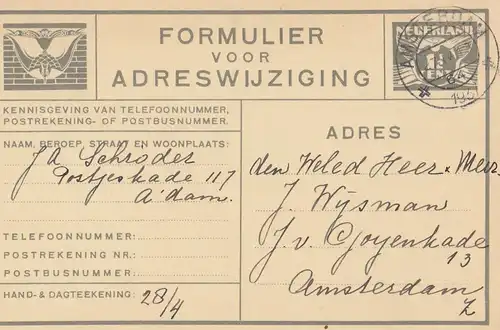 FORMULIER
VOOR
ADRESWIJZIGING
NEDERLAND
1½
CENT
AMSTERDAM
193
KENNISGEVING VAN TELEFOONNUMMER,
POSTREKENING- OF POSTBUSNUMMER.
NAAM, BEROEP, STRAAT EN WOONPLAATS:
J A Schroder
Postjeskade 117
A'dam.
TELEFOONNUMMER:
POSTREKENING NR.:
POSTBUSNUMMER:
HAND- & DAGTEEKENING: 28/4
ADRES
den Weled Heer & Mevr.
J. Wijsman
J. v. Goyenkade
13
Amsterdam
Z